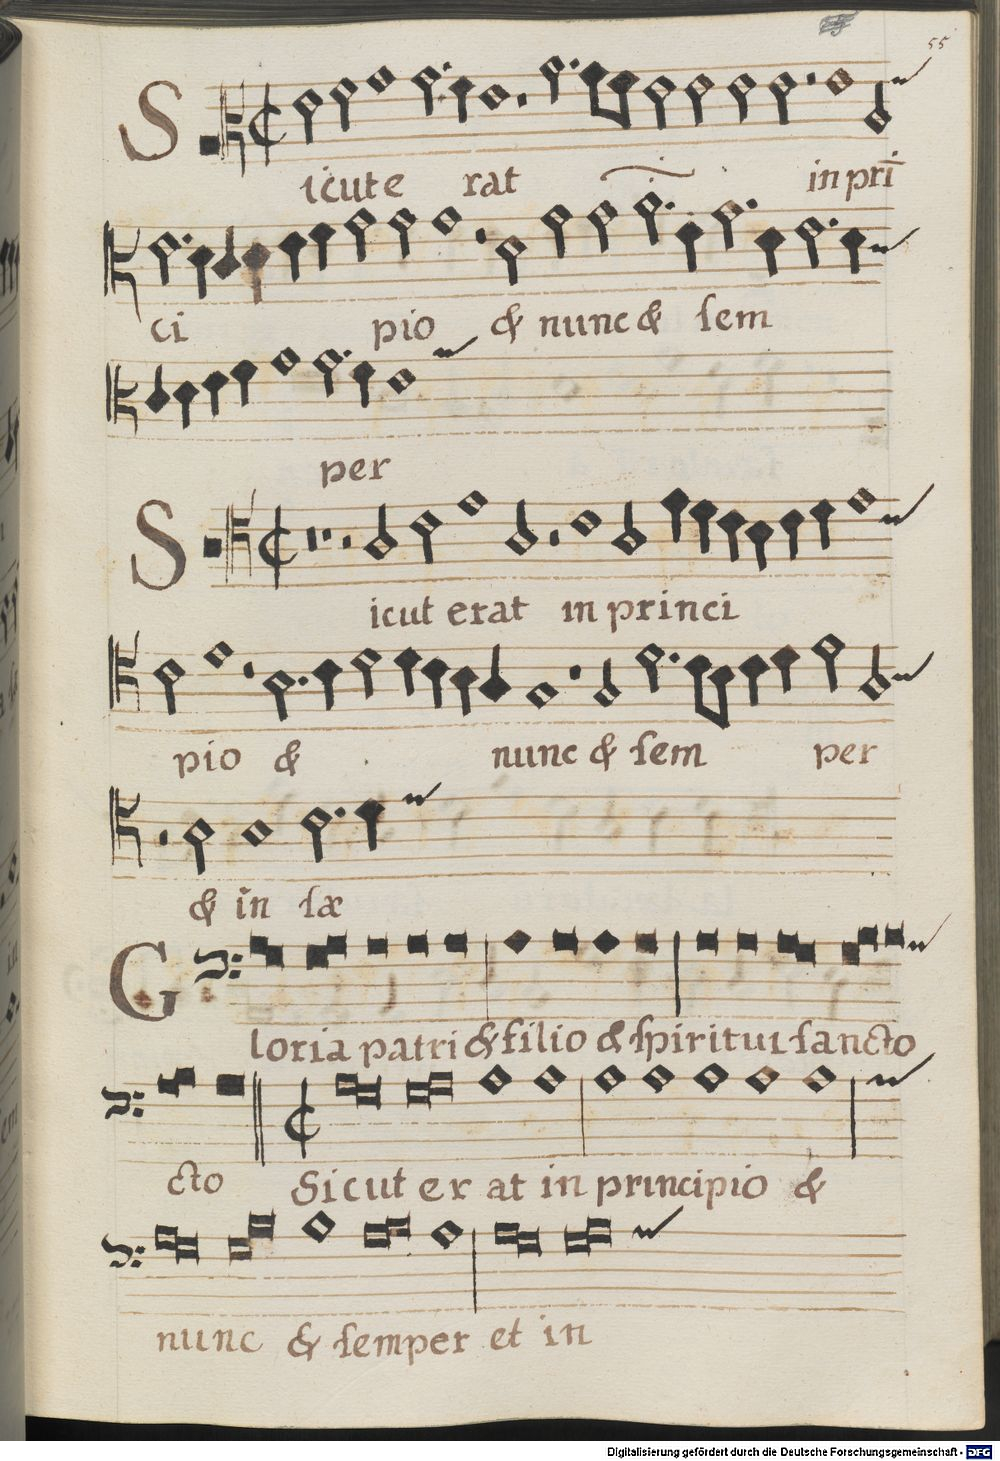 55
Sicut e rat in pri
ci pio & nunc & sem
per
Sicut erat in princi
pio & nunc & sem per
& in sæ
Gloria patri & filio & spiritui sancto
cto Sicut er at in principio &
nunc & semper et in
Digitalisierung gefördert durch die Deutsche Forschungsgemeinschaft - DFG